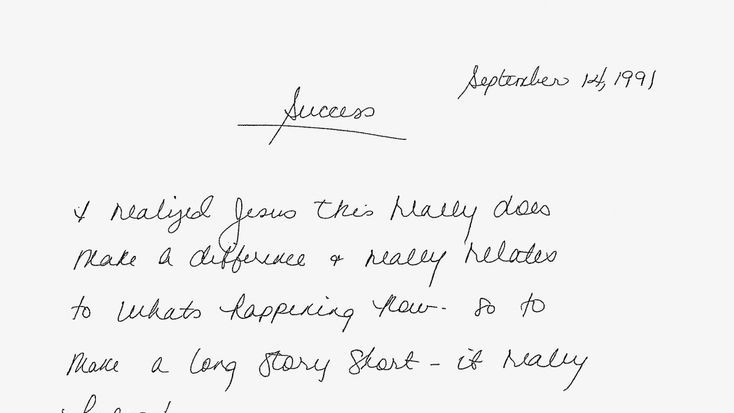 September 14, 1991
Success
& realized Jesus this really does
make a difference & really relates
to whats happening now - so to
make a long story short - it really